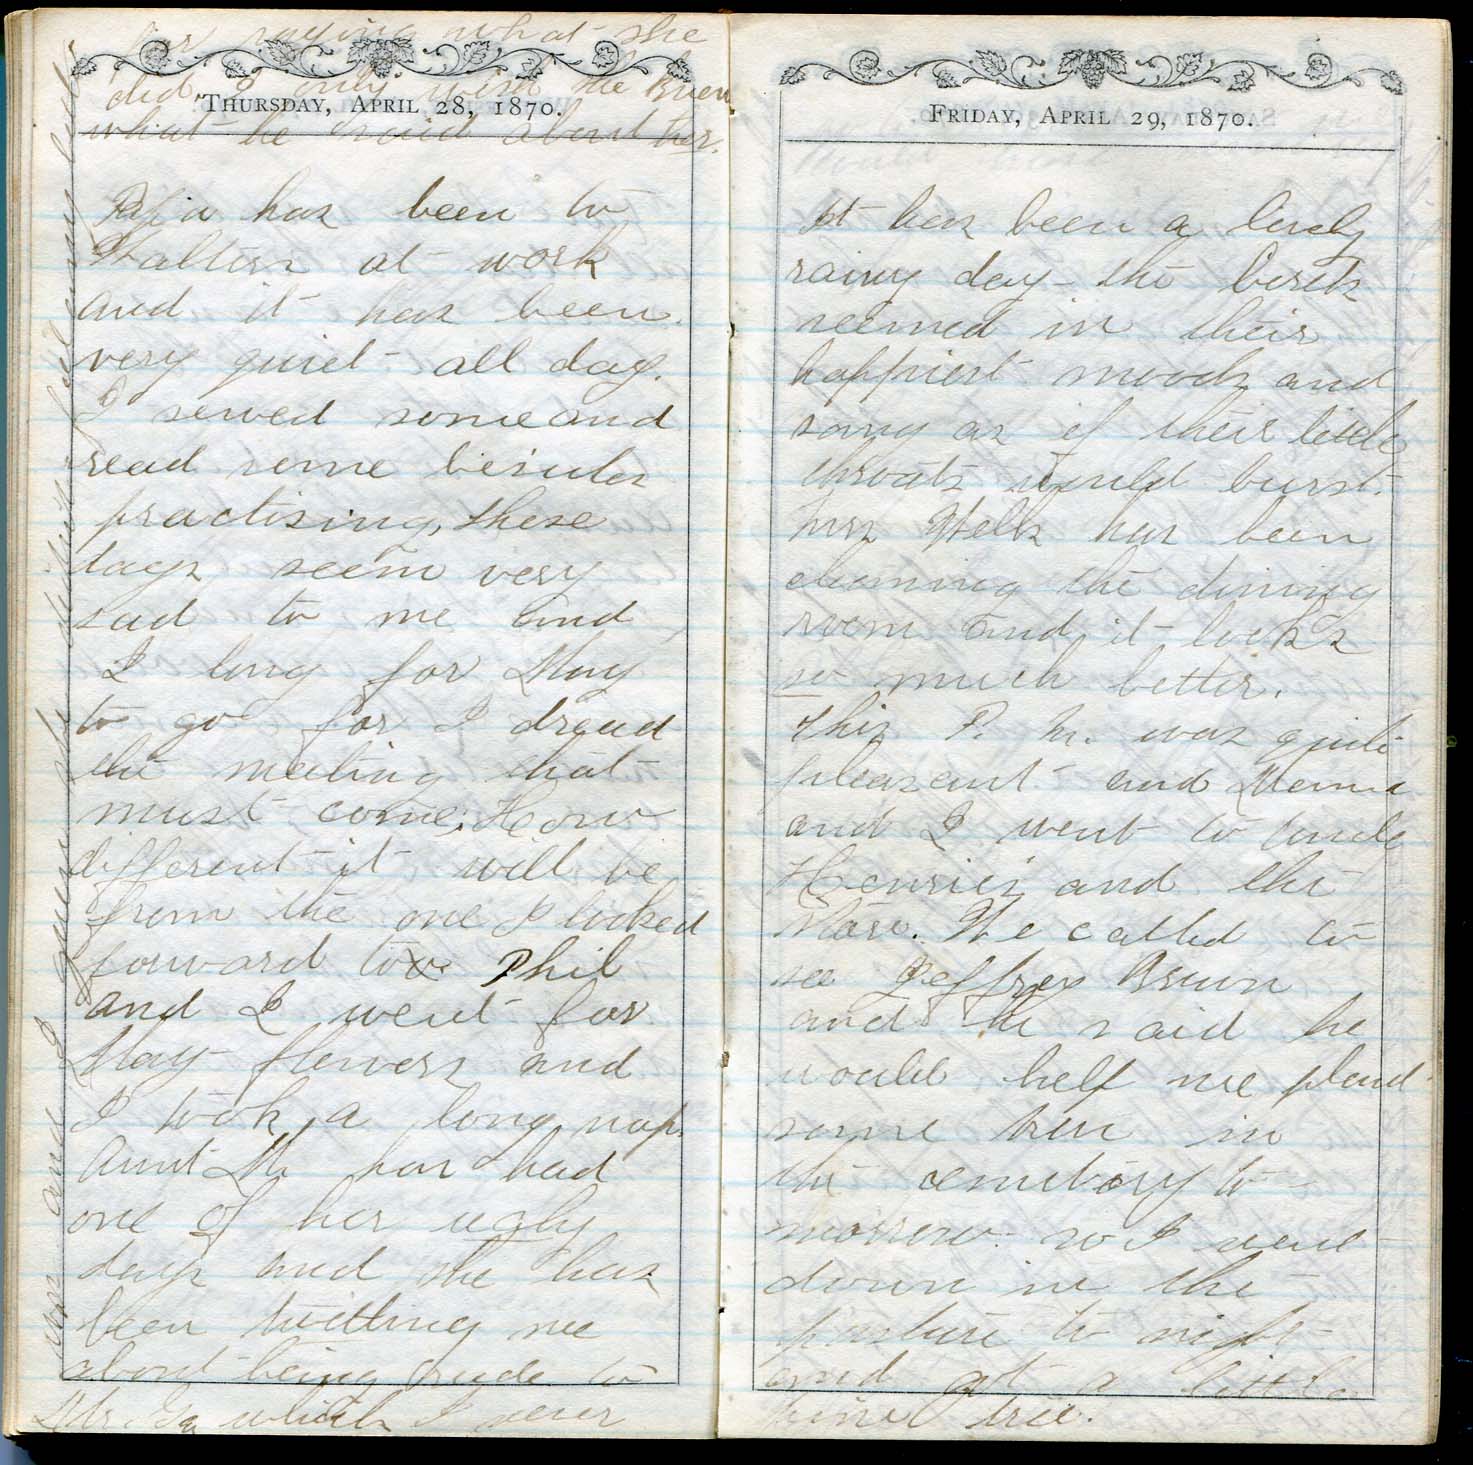 THURSDAY, APRIL 28, 1870.
Papa has been to
Walters at work
and it has been
very quiet all day.
I sewed some and
read some besides
practising, these
days seem very
sad to me and
I long for May
to go for I dread
the meeting that
must come. How
different it will be
from the one I looked
forward to. Phil
and I went for
May flowers and
I took a long nap.
Aunt M. has had
one of her ugly
days and she has
been twitting me
about being rude to
Mr. Ga which I never
was and I gave her
for saying what she
did I only wish he knew
what he said about her.
FRIDAY, APRIL 29, 1870.
It has been a lovely
rainy day the birds
seemed in their
happiest moods and
sang as if their little
throats would burst.
Mrs Wells has been
cleaning the dining
room and it looks
so much better.
This P. M. was quite
pleasant and Mama
and I went to Uncle
Henries and the
store. We called to
see Jeffrey Brown
and he said he
would help me plant
some tree in
the cemetery to-
morrow so I went
down in the
pasture to night
and got a little
pine tree.